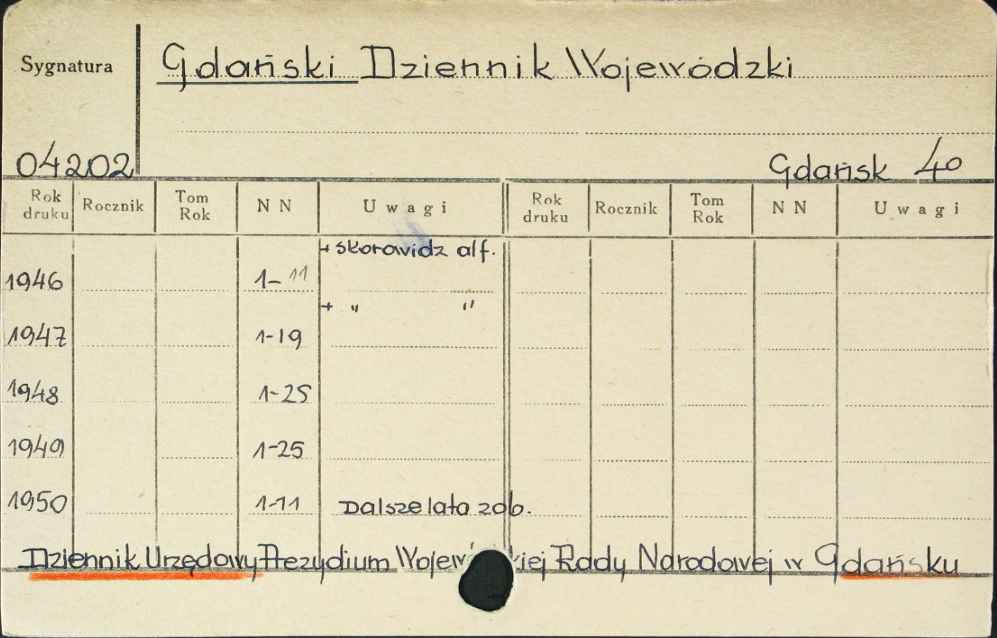 Sygnatura
Gdański Dziennik Wojewódzki
04202
Gdańsk 40
Rok druku Rocznik Tom Rok NN Uwagi Rok druku Rocznik Tom Rok NN Uwagi
+ skorowidz alf.
1946 1-11
+ " "
1947 1-19
1948 1-25
1949 1-25
1950 1-11 Dalsze lata zob.
Dziennik Urzędowy Prezydium Rady Narodowej w Gdańsku